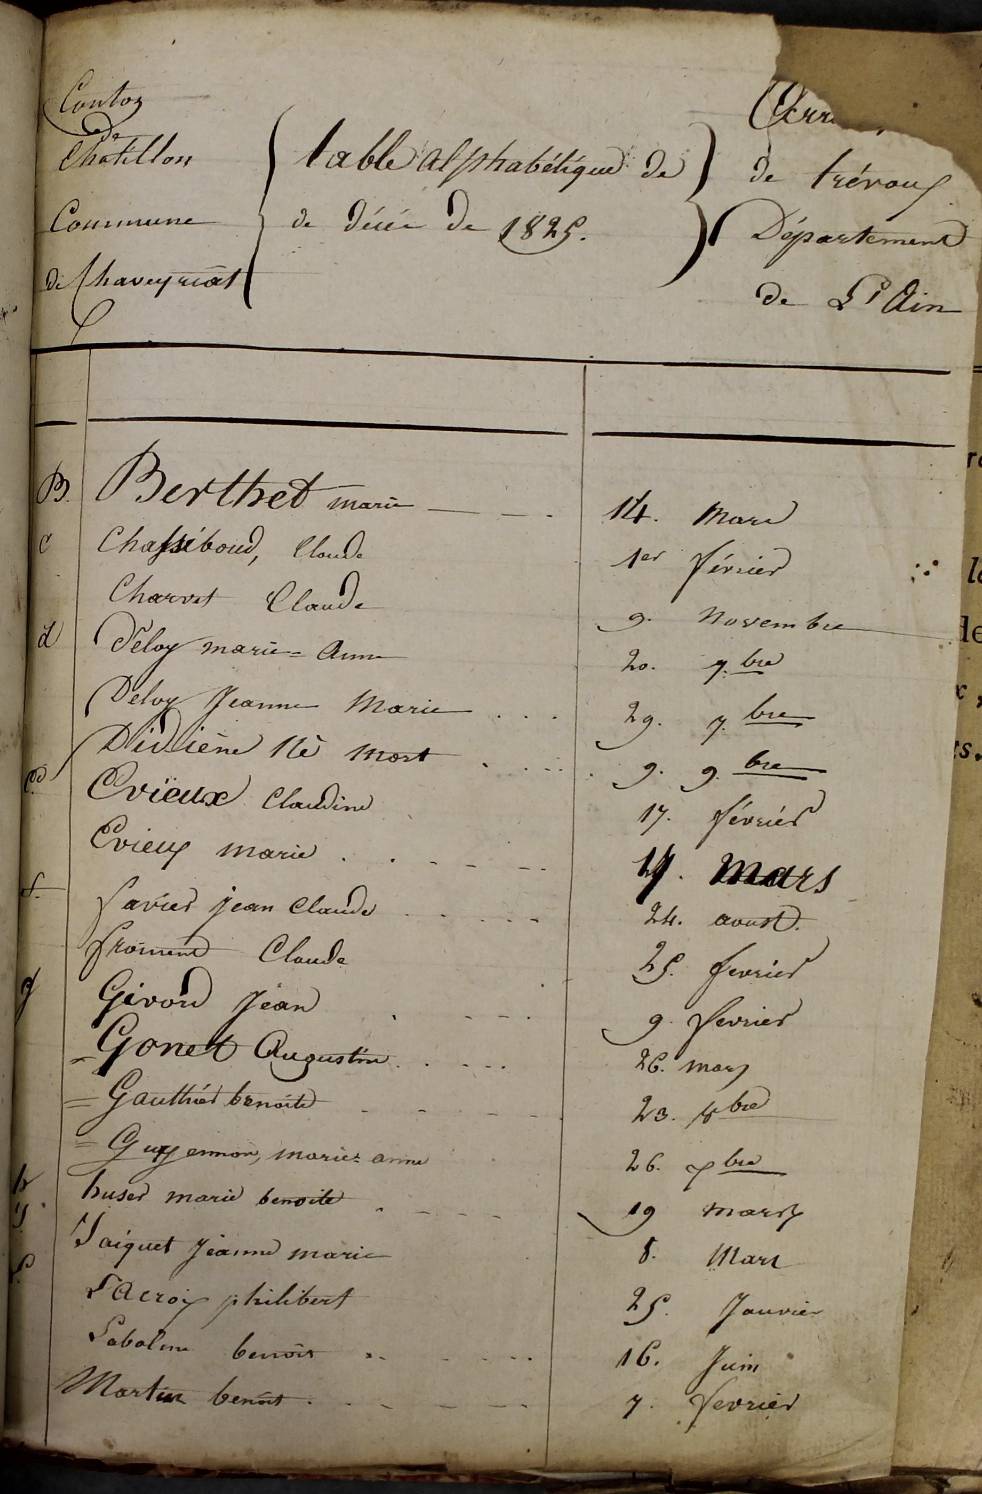 Canton
de
Châtillon
Commune
de Chaveyriat
table alphabétique de
de décés de 1825.
Arr
de trévoux
Département
de L'Ain
B. Berthet marie 14. Mars
C Chassiboud, Claude 1er février
Charvet Claude 9. Novembre
d Déloy marie=Anne 20. 7.bre
Deloy Jeanne Marie 29. 7.bre
Didiène Né mort 9. 9.bre
E Evïeux Claudine 17. février
Evieux marie 17. Mars
f. favier jean Claude 24. aoust.
froment Claude 25. fevrier
g Givord Jean 9. fevrier
=Gonet Augustin 26. mars
=Gauthier benoite 23. 8bre
=Guyennon, marie=anne 26. 7bre
h huser marie benoite 19 mars
J. Jaiquet jeanne marie 8. Mars
L. LaCroix philibert 25. Janvier
benoit 16. Juin
Martin benoit 7. fevrier